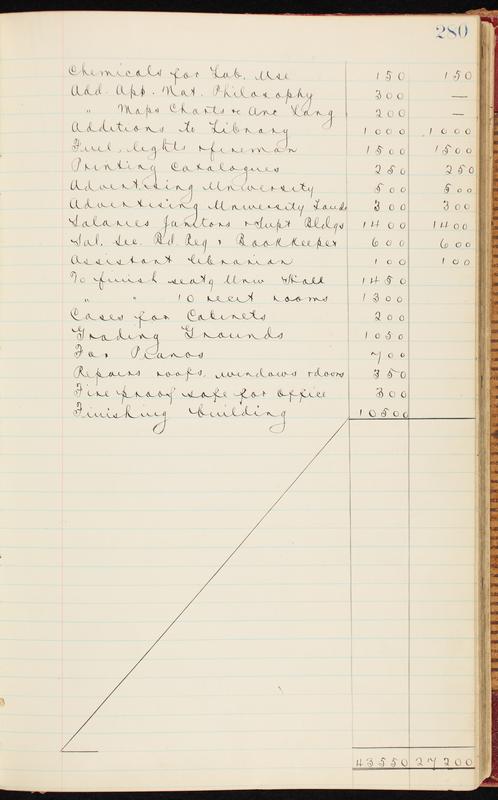 280
Chemicals for Lab. Use 150 150
Add. App. Nat. Philosophy 300 —
" Maps Charts & Anc Lang 200 —
Additions to Library 1000 1000
Fuel, lights & fireman 1500 1500
Printing Catalogues 250 250
Advertising University 500 500
Advertising University Lands 300 300
Salaries Janitors & Supt Bldgs 1400 1400
Sal. Sec. Bd. Reg & Bookkeeper 600 600
Assistant librarian 100 100
To finish seatg Univ Hall 1450
" " 10 recit rooms 1300
Cases for Cabinets 200
Grading Grounds 1050
For Pianos 700
Repairs roofs, windows & doors 350
Fire proof safe for office 300
Finishing building 10500
43550 27200